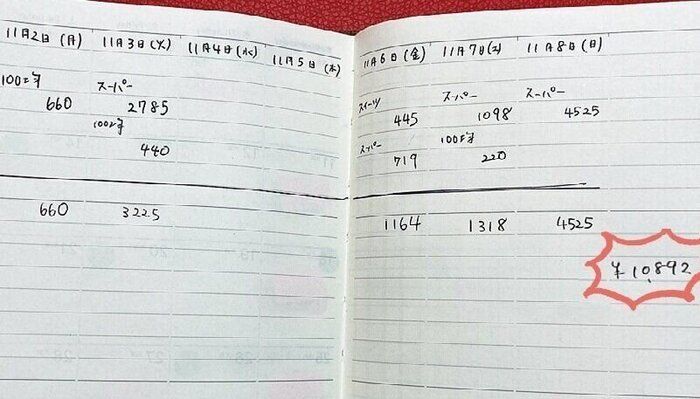 11月2日(月) 11月3日(火) 11月4日(水) 11月5日(木) 11月6日(金) 11月7日(土) 11月8日(日)
100均 スーパー スイーツ スーパー スーパー
660 2785 445 1098 4525
100均 スーパー 100均
440 719 220
660 3225 1164 1318 4525
¥10,892